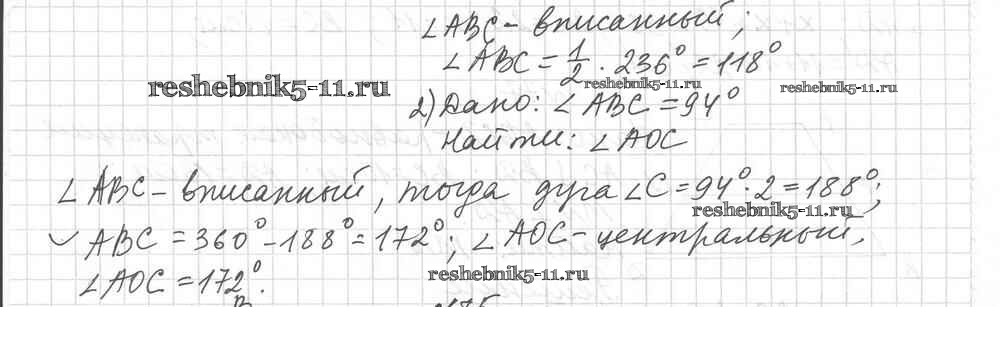 ∠ABC - вписанный;
∠ABC = 1/2 · 236° = 118°
reshebnik5-11.ru
reshebnik5-11.ru
reshebnik5-11.ru
2) Дано: ∠ABC = 94°
Найти: ∠AOC
∠ABC - вписанный, тогда дуга ∠C = 94° · 2 = 188°;
reshebnik5-11.ru
◡ ABC = 360° - 188° = 172°; ∠AOC - центральный,
∠AOC = 172°.
reshebnik5-11.ru